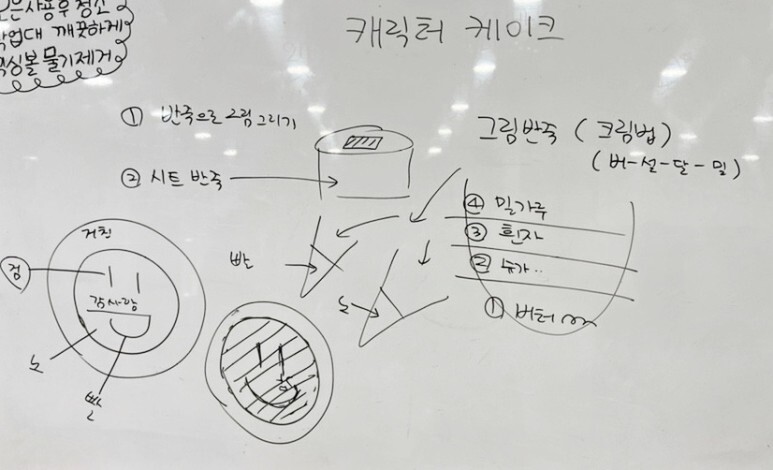 은사용후 청소
작업대 깨끗하게
믹싱볼 물기제거
캐릭터 케이크
① 반죽으로 그림그리기
② 시트 반죽
그림반죽 ( 크림법 )
( 버-설-달-밀 )
④ 밀가루
③ 흰자
② 슈가..
① 버터
거친
검
감사랑
노
빨
빨
노